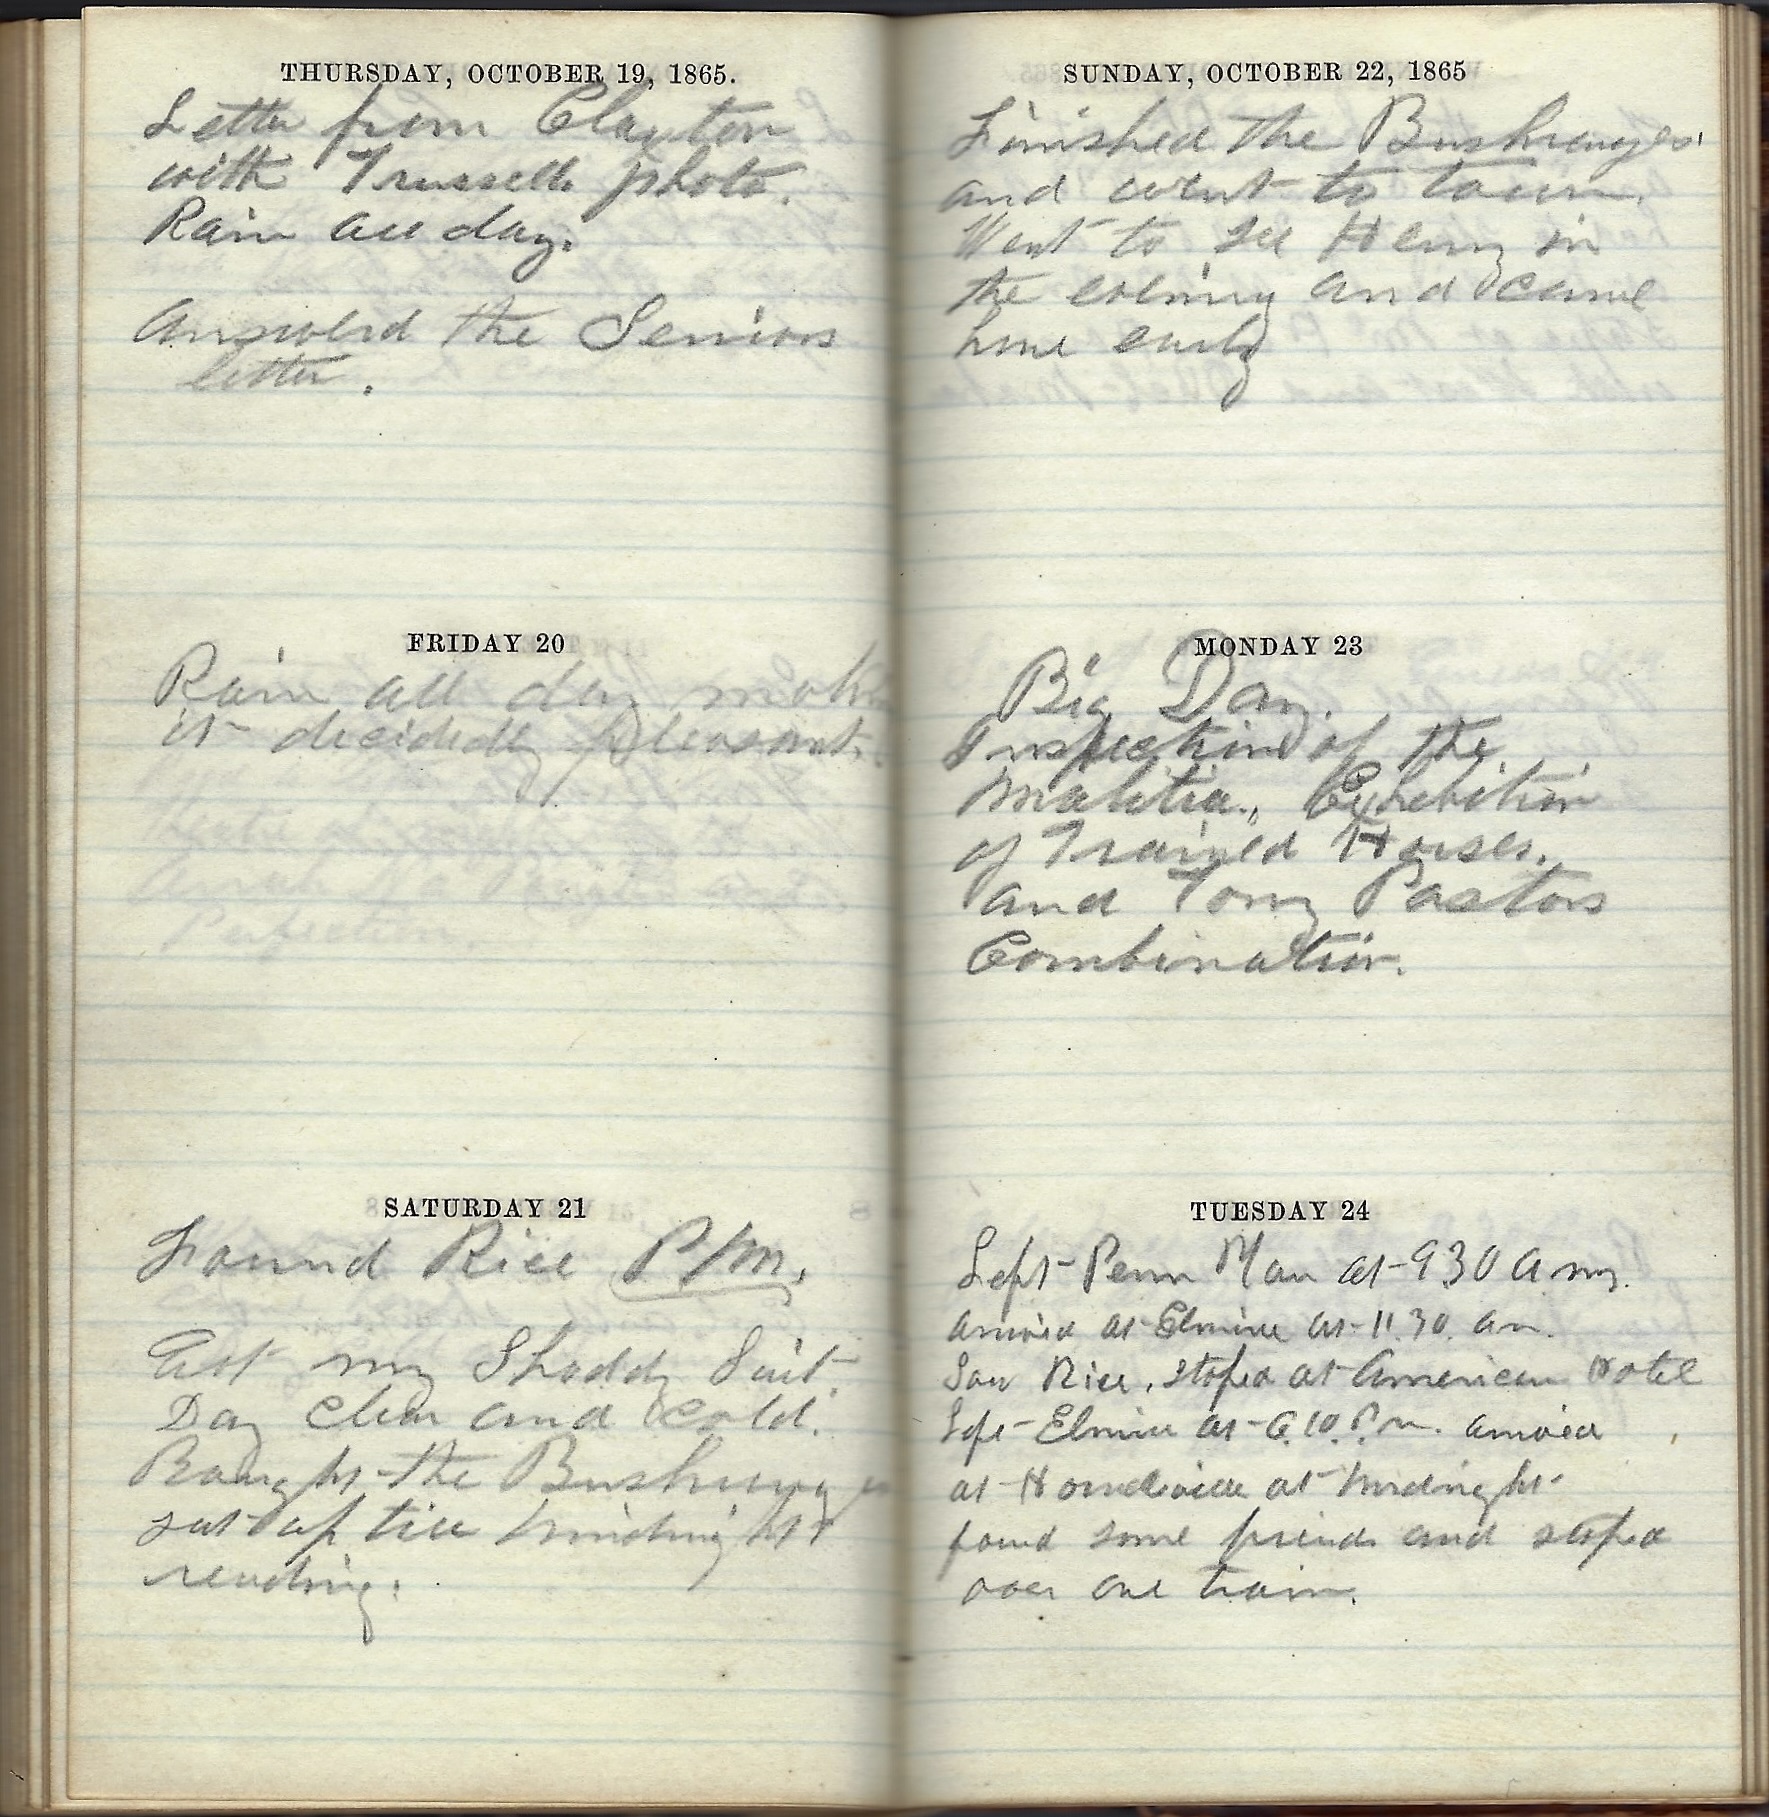 THURSDAY, OCTOBER 19, 1865.
Letter from Clayton
with Trussells photo.
Rain all day.
Answerd the Seniors
letter.
FRIDAY 20
Rain all day makes
it decidedly pleasant.
SATURDAY 21
Found Rice P/m.
Got my Shoddy Suit.
Day clear and cold.
Bought the Bushranger
sat up till midnight
reading.
SUNDAY, OCTOBER 22, 1865
Finished the Bushranger
and went to town.
Went to see Henry in
the evening and came
home early
MONDAY 23
Big Day.
Inspection of the
Malitia, Exhibition
of Trained Horses.
and Tony Pastors
Combination.
TUESDAY 24
Left Penn Yan at 9 30 a m.
arrived at Elmira at 11.30. am.
Saw Rice, stoped at American Hotel
Left Elmira at 6.10. P.m. arrived
at at midnight
found some friends and stoped
over one train.